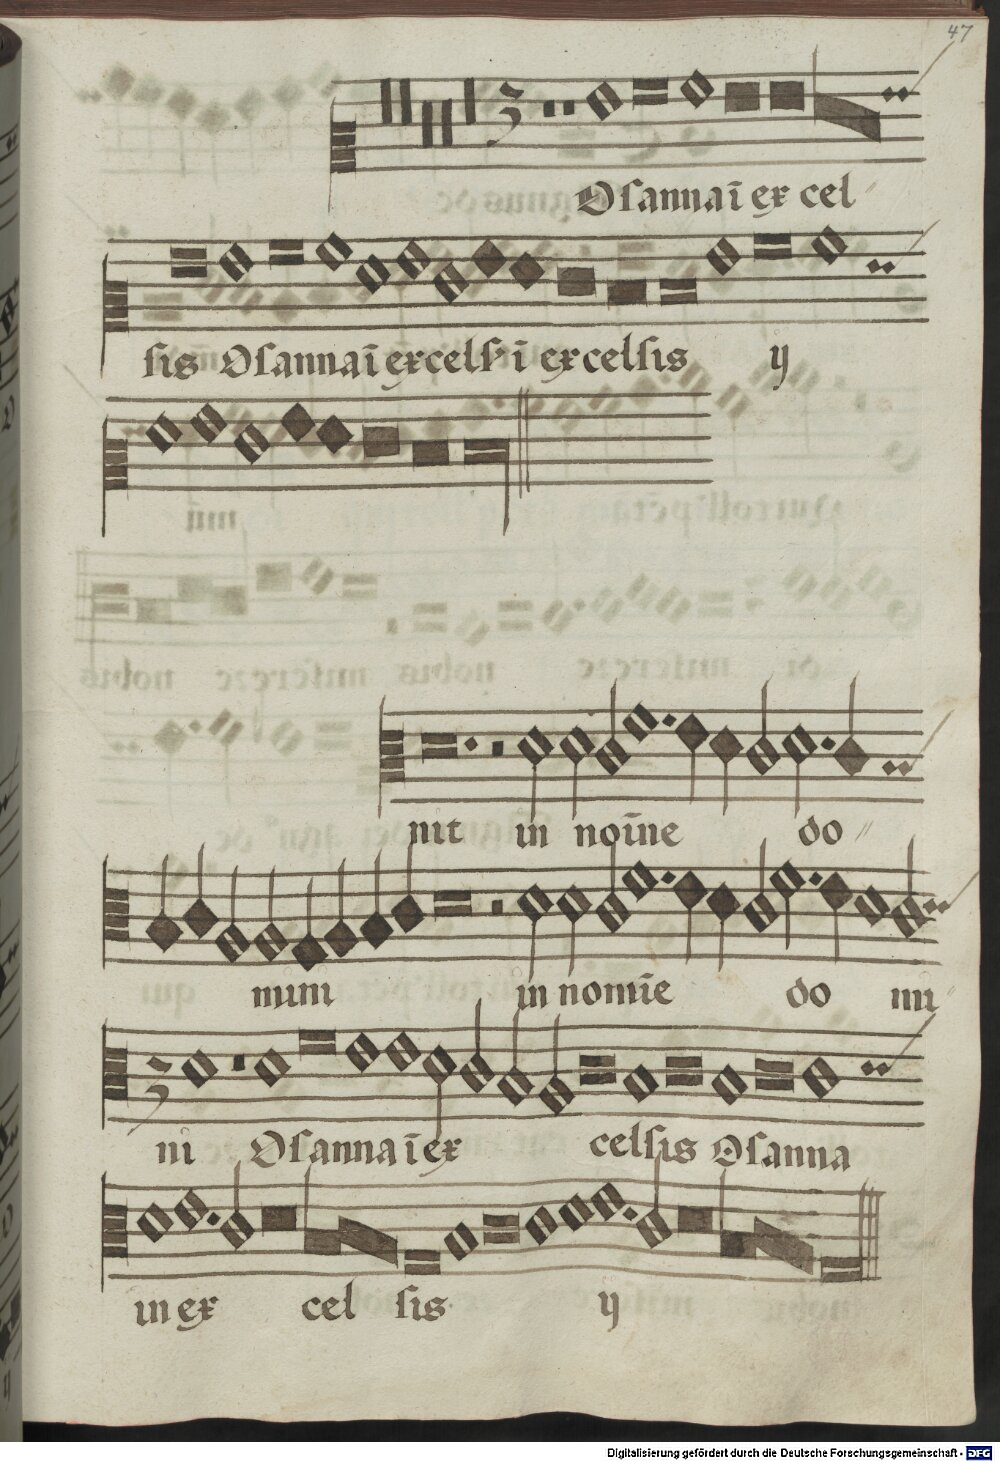 47
Osanna ī ex cel
sis Osanna ī excels ī excelsis ij
nit in noīne do
mini in nomīe do mi
ni Osanna ī ex celsis Osanna
in ex cel sis ij
Digitalisierung gefördert durch die Deutsche Forschungsgemeinschaft - DFG